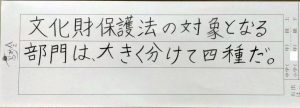 文化財保護法の対象となる
部門は、大きく分けて四種だ。